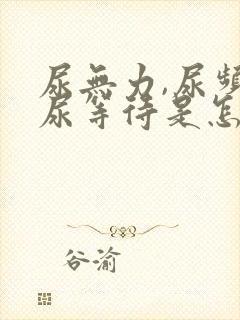 尿無力,尿頻
尿等待是怎
谷渝